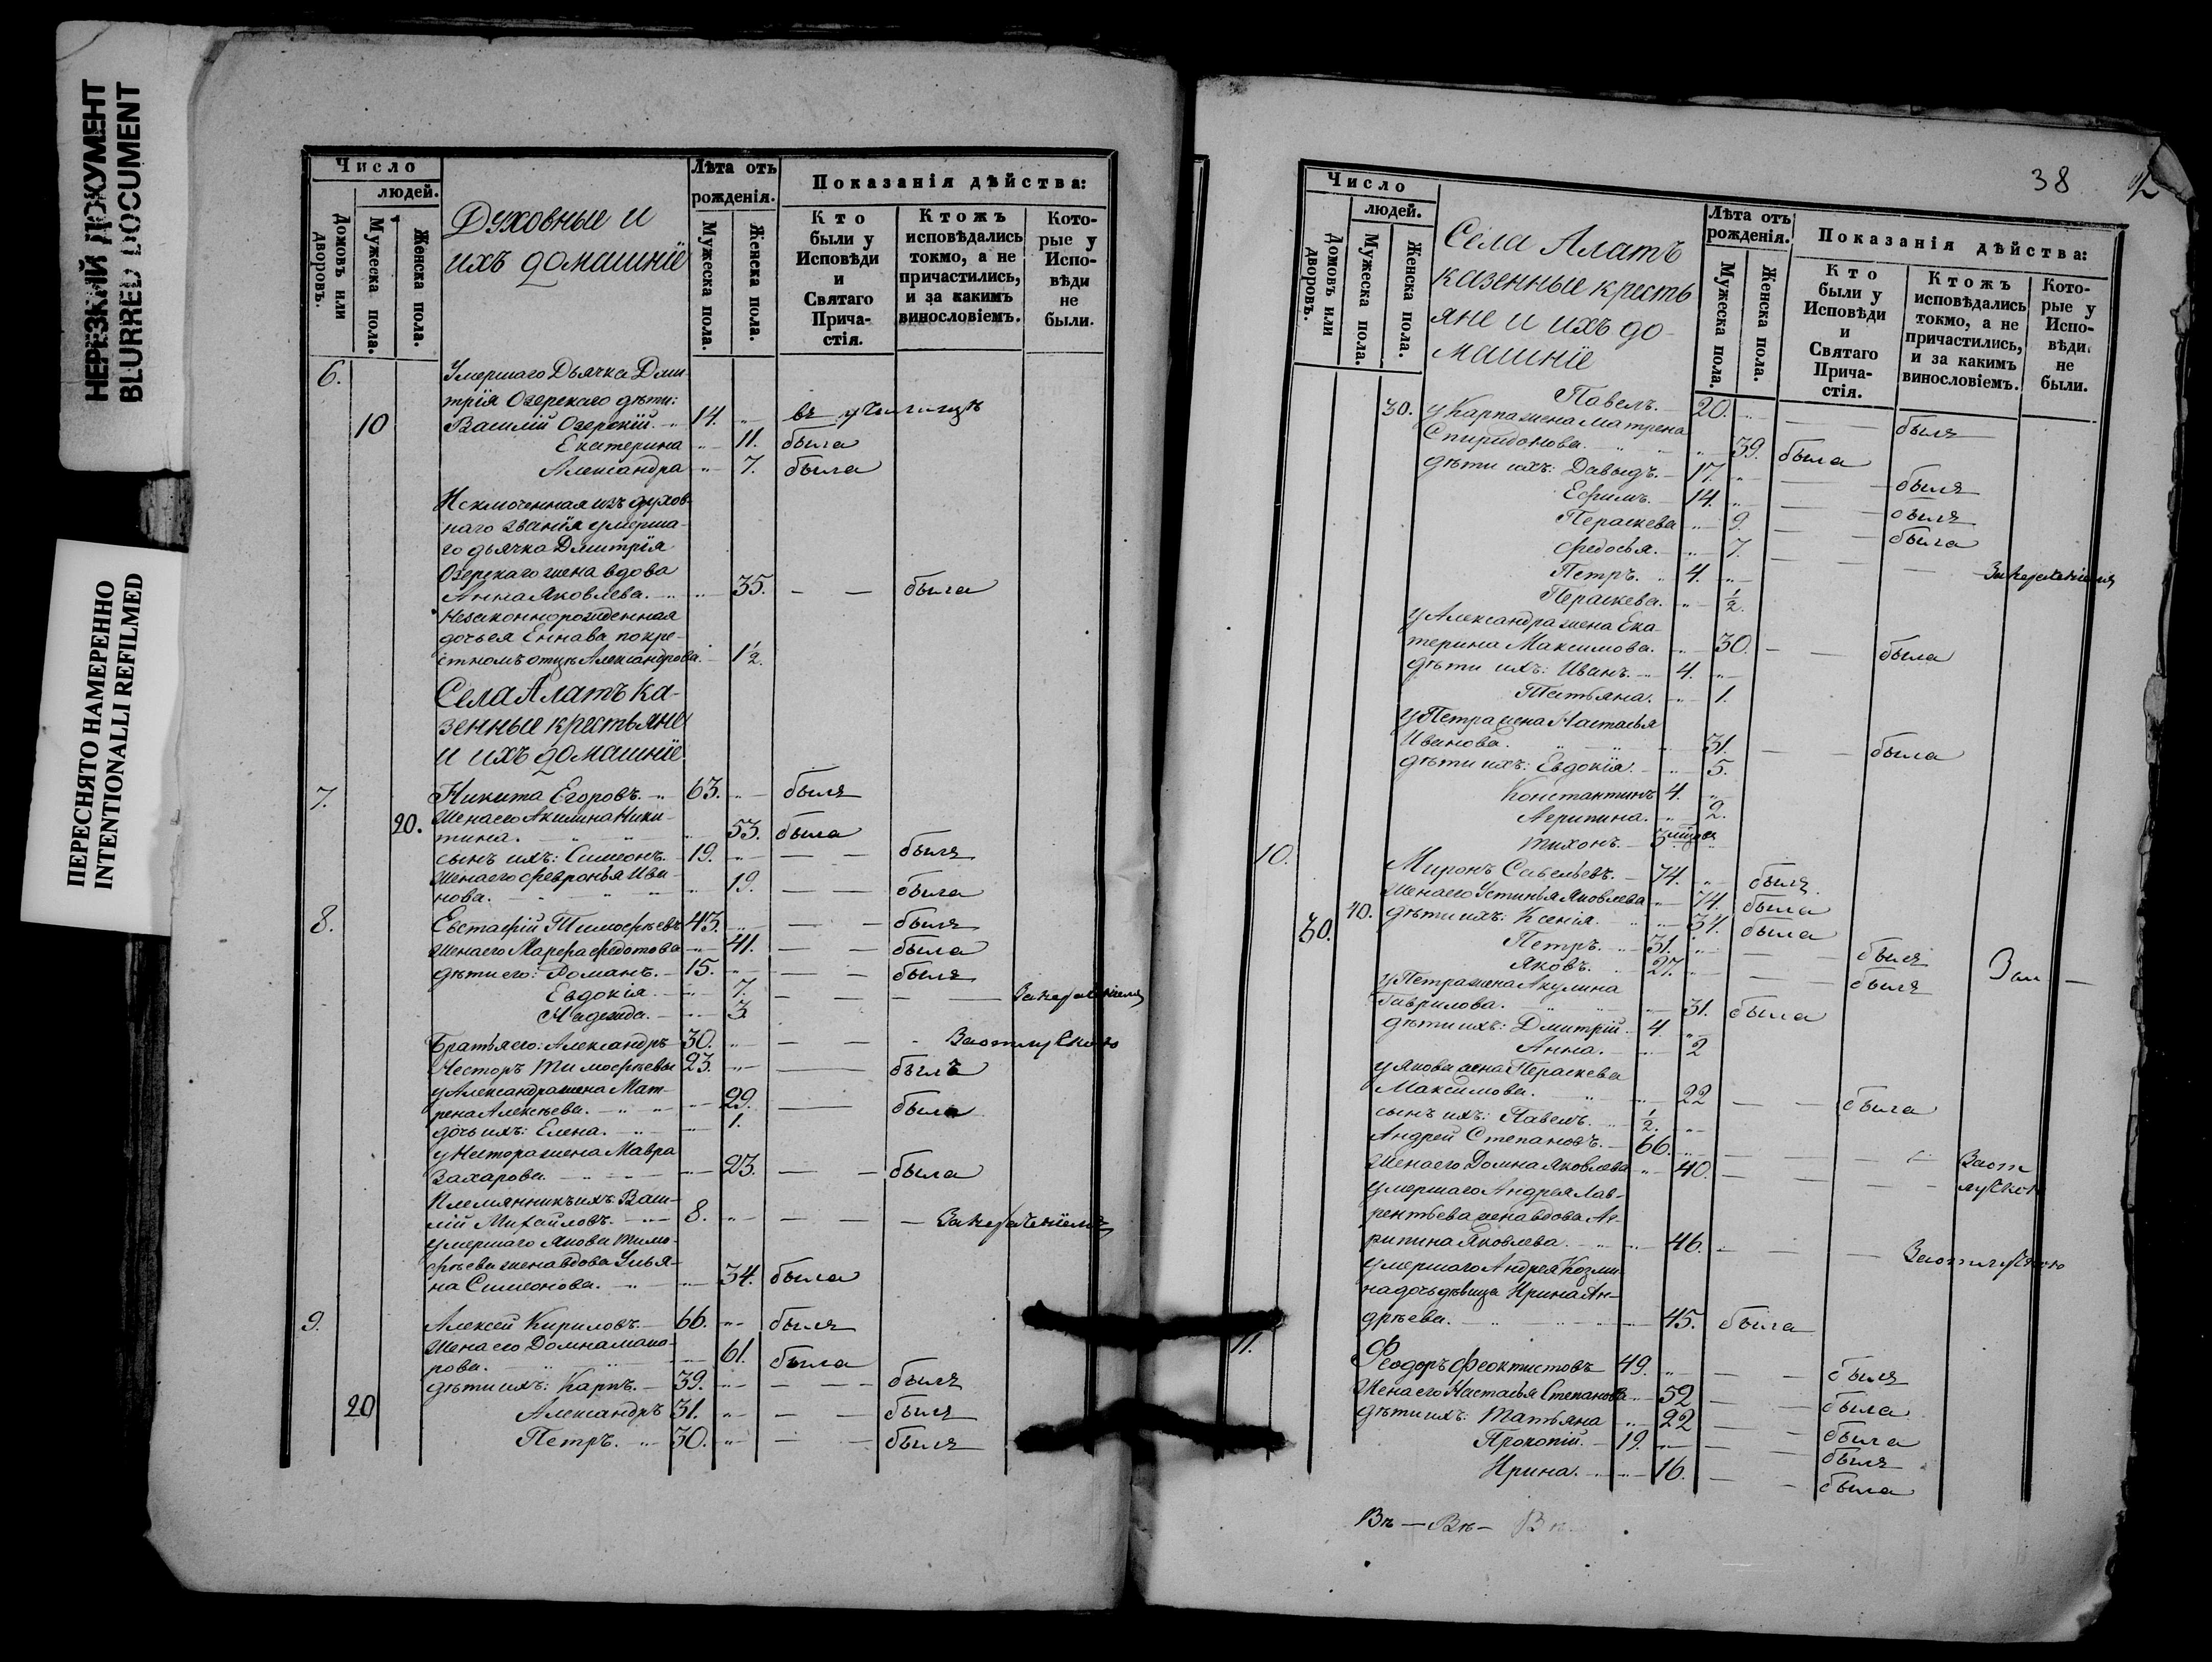 НЕРЕЗКИЙ ДОКУМЕНТ
BLURRED DOCUMENT
ПЕРЕСНЯТО НАМЕРЕННО
INTENTIONALLI REFILMED
Число
людей.
Домовъ или дворовъ.
Мужеска пола.
Женска пола.
Духовные и
ихъ домашніе
Лѣта отъ
рожденія.
Мужеска пола.
Женска пола.
Показанія дѣйства:
Кто были у Исповѣди и Святаго Прича-стія.
Ктожъ исповѣдались токмо, а не причастились, и за какимъ винословіемъ.
Кото-рые у Испо-вѣди не были.
6. Умершаго Дьячка Дми-
трія Озерскаго дѣти:
10 Василій Озерскій. 14. въ училищѣ
Екатерина 11. была
Александра 7. была
Исключенная изъ духов-
наго званія умерша-
го дьячка Дмитрія
Озерскаго жена вдова
Анна Яковлева. 35. — — была
Незаконнорожденная
дочь ея Еннава по кре-
стномъ отцѣ Александрова. 1½.
Села Алатъ ка-
зенные крестьяне
и ихъ домашніе
7. Никита Егоровъ. 63. былъ
20. Жена его Акилина Ники-
тина. 53. была
сынъ ихъ: Симеонъ. 19. — — былъ
Жена его Февронья Ива-
нова. 19. — — была
8. Евстафій Тимофѣевъ 43. — — былъ
Жена его Марфа Федотова 41. — — была
дѣти его: Романъ. 15. — — былъ
Евдокія. 7. — — — За нерадѣніемъ
Надежда. 3.
Братья его: Александръ 30. — — За отлучкою
Несторъ Тимофѣевы 23. — — былъ
у Александра жена Мат-
рена Алексѣева. 29. — была
дочь ихъ: Елена. 1.
у Нестора жена Мавра
Захарова. 23. — — была
Племянникъ ихъ Васи-
лій Михайловъ. 8. — — — За нерадѣніемъ
умершаго Якова Тимо-
фѣева жена вдова Улья-
на Симеонова. 34. была
9. Алексей Кириловъ. 66. былъ
Жена его Домна Мака-
рова. 61. была
дѣти ихъ: Карпъ. 39. — — былъ
20 Александръ 31. — — былъ
Петръ. 30. — — былъ
38
Число
людей.
Домовъ или дворовъ.
Мужеска пола.
Женска пола.
Села Алатъ
казенные кресть
яне и ихъ до-
машніе
Лѣта отъ
рожденія.
Мужеска пола.
Женска пола.
Показанія дѣйства:
Кто были у Исповѣди и Святаго Прича-стія.
Ктожъ исповѣдались токмо, а не причастились, и за какимъ винословіемъ.
Кото-рые у Испо-вѣди не были.
Павелъ. 20. — — былъ
30. у Карпа жена Матрена
Спиридонова. 39. была
дѣти ихъ: Давыдъ. 17. — — былъ
Ефимъ. 14. — — былъ
Пераскева 9. — — была
Федосья. 7. — — — За нерадѣніемъ
Петръ. 4.
Пераскева. ½.
у Александра жена Ека-
терина Максимова. 30. — — была
дѣти ихъ: Иванъ. 4.
Татьяна. 1.
у Петра жена Настасья
Иванова. 31. — — была
дѣти ихъ: Евдокія. 5.
Константинъ 4.
Агрипина. 2.
Тихонъ. 3 мѣся
10. Миронъ Савельевъ. 74. былъ
Жена его Устинья Яковлева 74. была
40. дѣти ихъ: Ксенія. 34. была
30. Петръ. 31. — — былъ
Яковъ. 27. — — былъ
у Петра жена Акулина
Гаврилова. 31. была
дѣти ихъ: Дмитрій. 4.
Анна. 2
у Якова жена Пераскева
Максимова. 22 — — была
сынъ ихъ: Павелъ. ½.
Андрей Степановъ. 66. — — — За от
Жена его Домна Яковлева 40. — — — лучкою
умершаго Андрея Лав-
рентьева жена вдова Аг-
рипина Яковлева. 46. — — — За отлучкою
умершаго Андрея Козми-
на дочь дѣвица Ирина Ан-
дрѣева. 45. была
11. Феодоръ Феоктистовъ 49. — — былъ
Жена его Настасья Степанова 52 — — была
дѣти ихъ: Татьяна 22 — — была
Прокопій. 19. — — былъ
Ирина. 16. — — была
Въ — Въ —